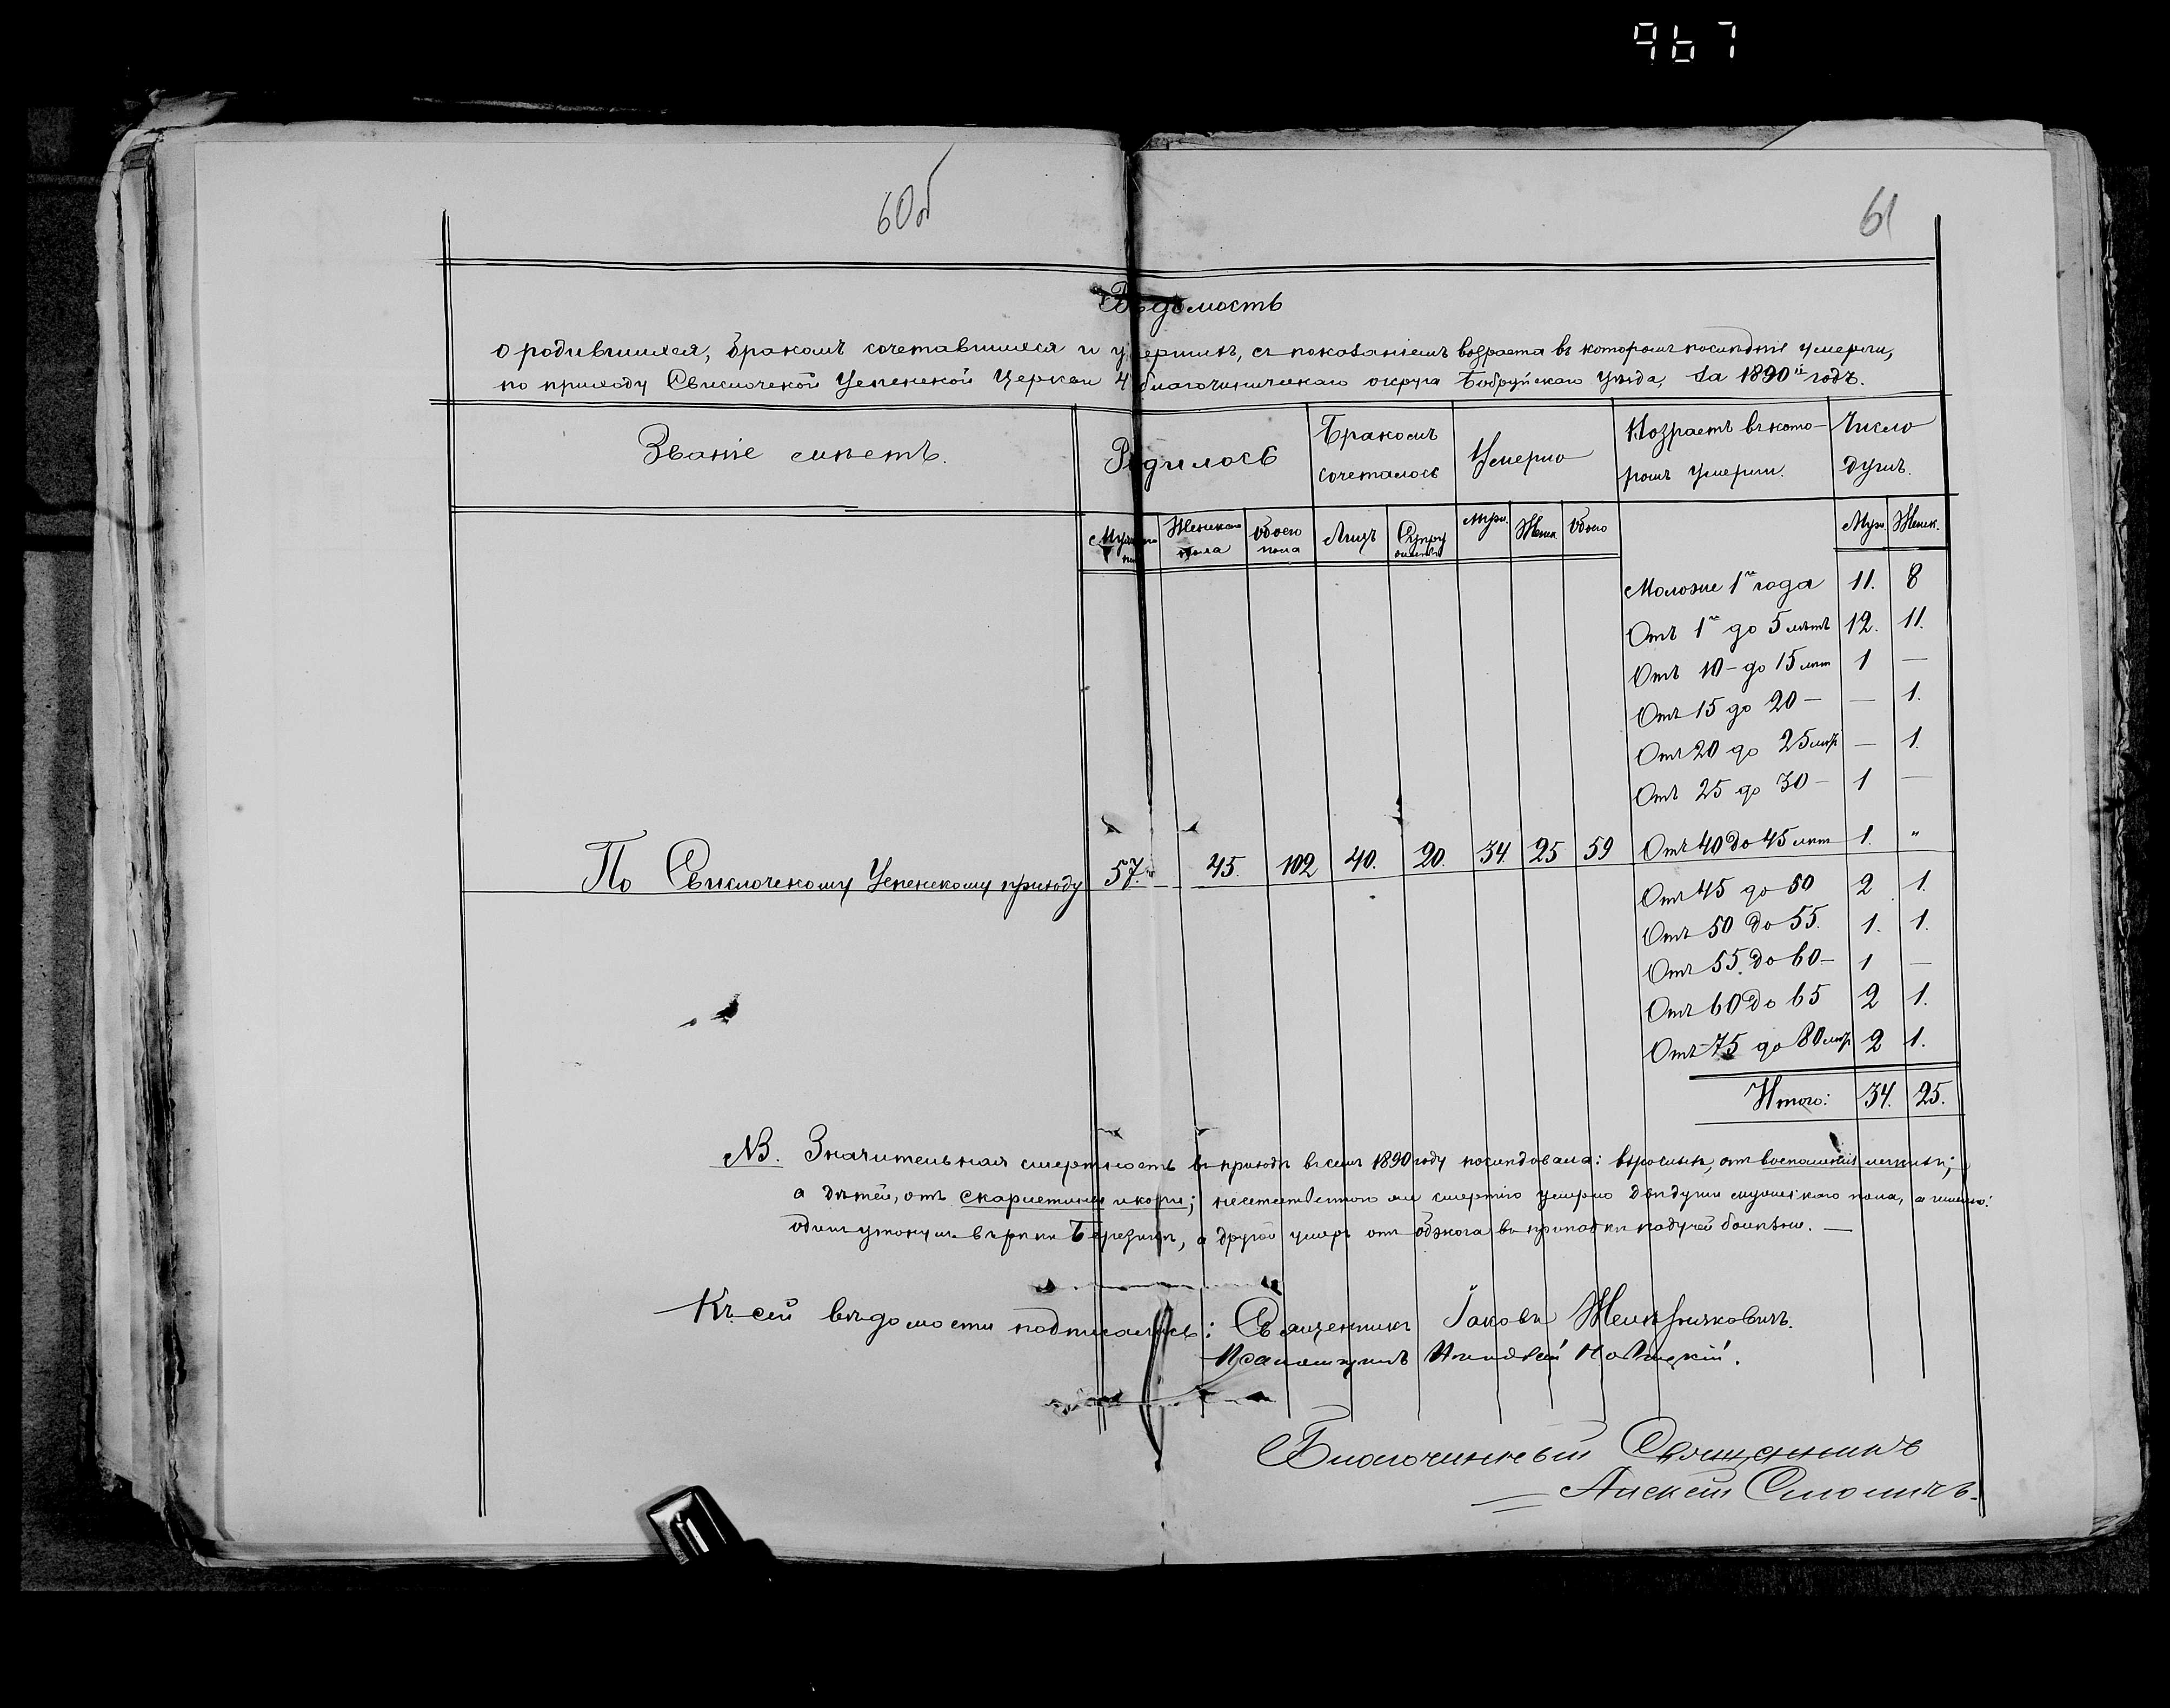 967
60об
61
Вѣдомость
о родившихся, бракомъ сочетавшихся и умершихъ, съ показаніемъ возраста въ которомъ послѣдніе умерли,
по приходу Свислочской Успенской Церкви 4 благочинническаго округа Бобруйскаго уѣзда, за 1890й годъ.
Званіе смѣтъ. Родилось Бракомъ сочеталось Умерло Возрастъ въ кото-ромъ умерли. Число душъ.
Мужскаго пола Женскаго пола Обоего пола Лицъ Супру Муж. Женск Обоего Муж. Женск.
Моложе 1го года 11. 8
Отъ 1го до 5 лѣтъ 12. 11.
Отъ 10 – до 15 лѣт 1 —
Отъ 15 до 20 — — 1.
Отъ 20 до 25 лѣт — 1.
Отъ 25 до 30 — 1 —
По Свислочскому Успенскому приходу 57. 45. 102 40. 20. 34. 25 59 Отъ 40 до 45 лѣт 1. "
Отъ 45 до 50 2 1.
Отъ 50 до 55. 1. 1.
Отъ 55. до 60 — 1 —
Отъ 60 до 65 2 1.
Отъ 75 до 80 лѣт 2 1.
Итого: 34. 25.
NB. Значительная смертность въ приходѣ въ семъ 1890 году послѣдовала: взрослыхъ, отъ воспаленія легкихъ;
а дѣтей, отъ скарлатины и кори; неестественною же смертію умерло двѣ души мужескаго пола, а именно:
одинъ утонулъ въ рѣкѣ Березинѣ, а другой умеръ отъ обжога въ припадкѣ падучей болѣзни. —
Къ сей вѣдомости подписались: Священникъ Іаковъ Желѣзняковичъ.
Псаломщикъ Новицкій.
Благочинный Священникъ
Алексѣй Смоличъ.